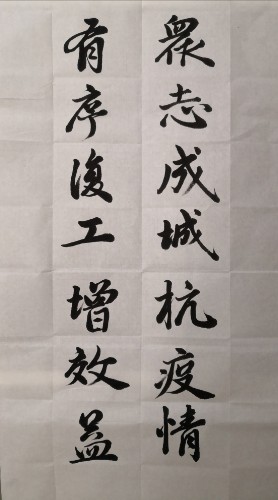 眾志成城抗疫情
有序復工增效益